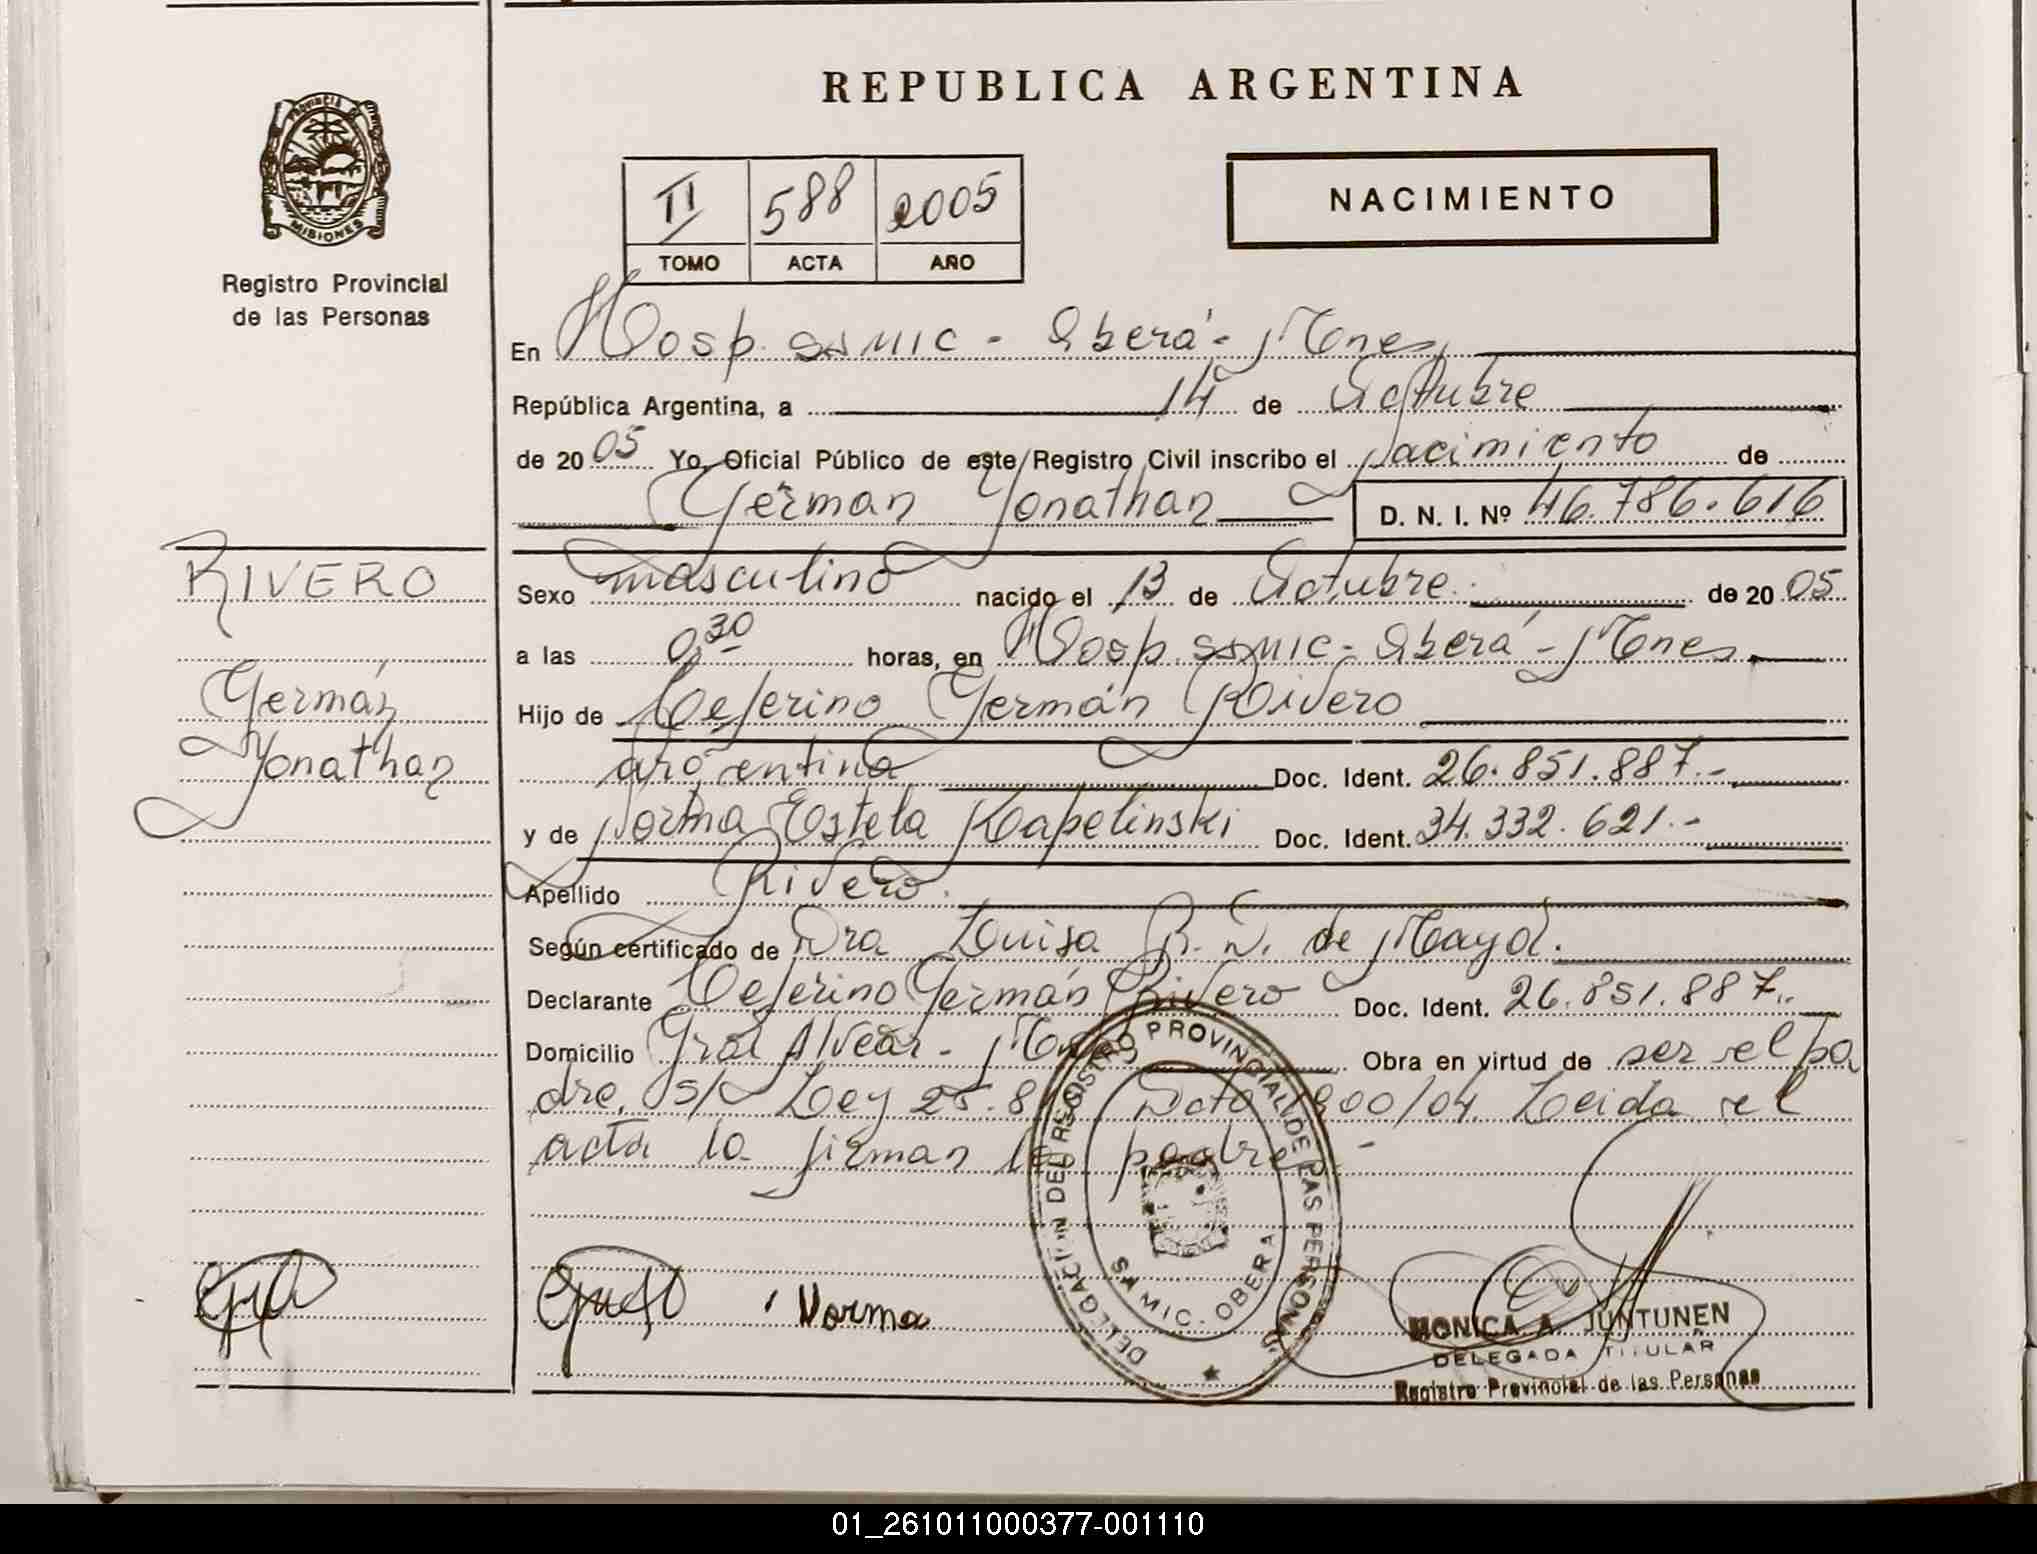 REPUBLICA ARGENTINA
PROVINCIA DE
MISIONES
Registro Provincial
de las Personas
II 588 2005
TOMO ACTA AÑO
NACIMIENTO
En Hosp. SAMIC - Oberá - Mnes
República Argentina, a 14 de Octubre
de 2005 Yo, Oficial Público de este Registro Civil inscribo el Nacimiento de
Germán Yonathan D. N. I. Nº 46.786.616
RIVERO
Germán
Yonathan
Sexo masculino nacido el 13 de Octubre. de 2005
a las 0,30 horas, en Hosp. SAMIC - Oberá - Mnes.
Hijo de Ceferino Germán Rivero
argentina Doc. Ident. 26.851.887.-
y de Norma Estela Kapelinski Doc. Ident. 34.332.621.-
Apellido Rivero.
Según certificado de Dra Luisa R. D. de Mayol.
Declarante Ceferino Germán Rivero Doc. Ident. 26.851.887..
Domicilio Gral Alvear - Mnes Obra en virtud de ser el pa
dre. S/ Ley 25.8 Dcto 900/04. Leida el
acta la firman padres -
Norma
DELEGACION DEL REGISTRO PROVINCIAL DE LAS PERSONAS
SAMIC. OBERA
MONICA A. JUNTUNEN
DELEGADA TITULAR
Registro Provincial de las Personas
01_261011000377-001110